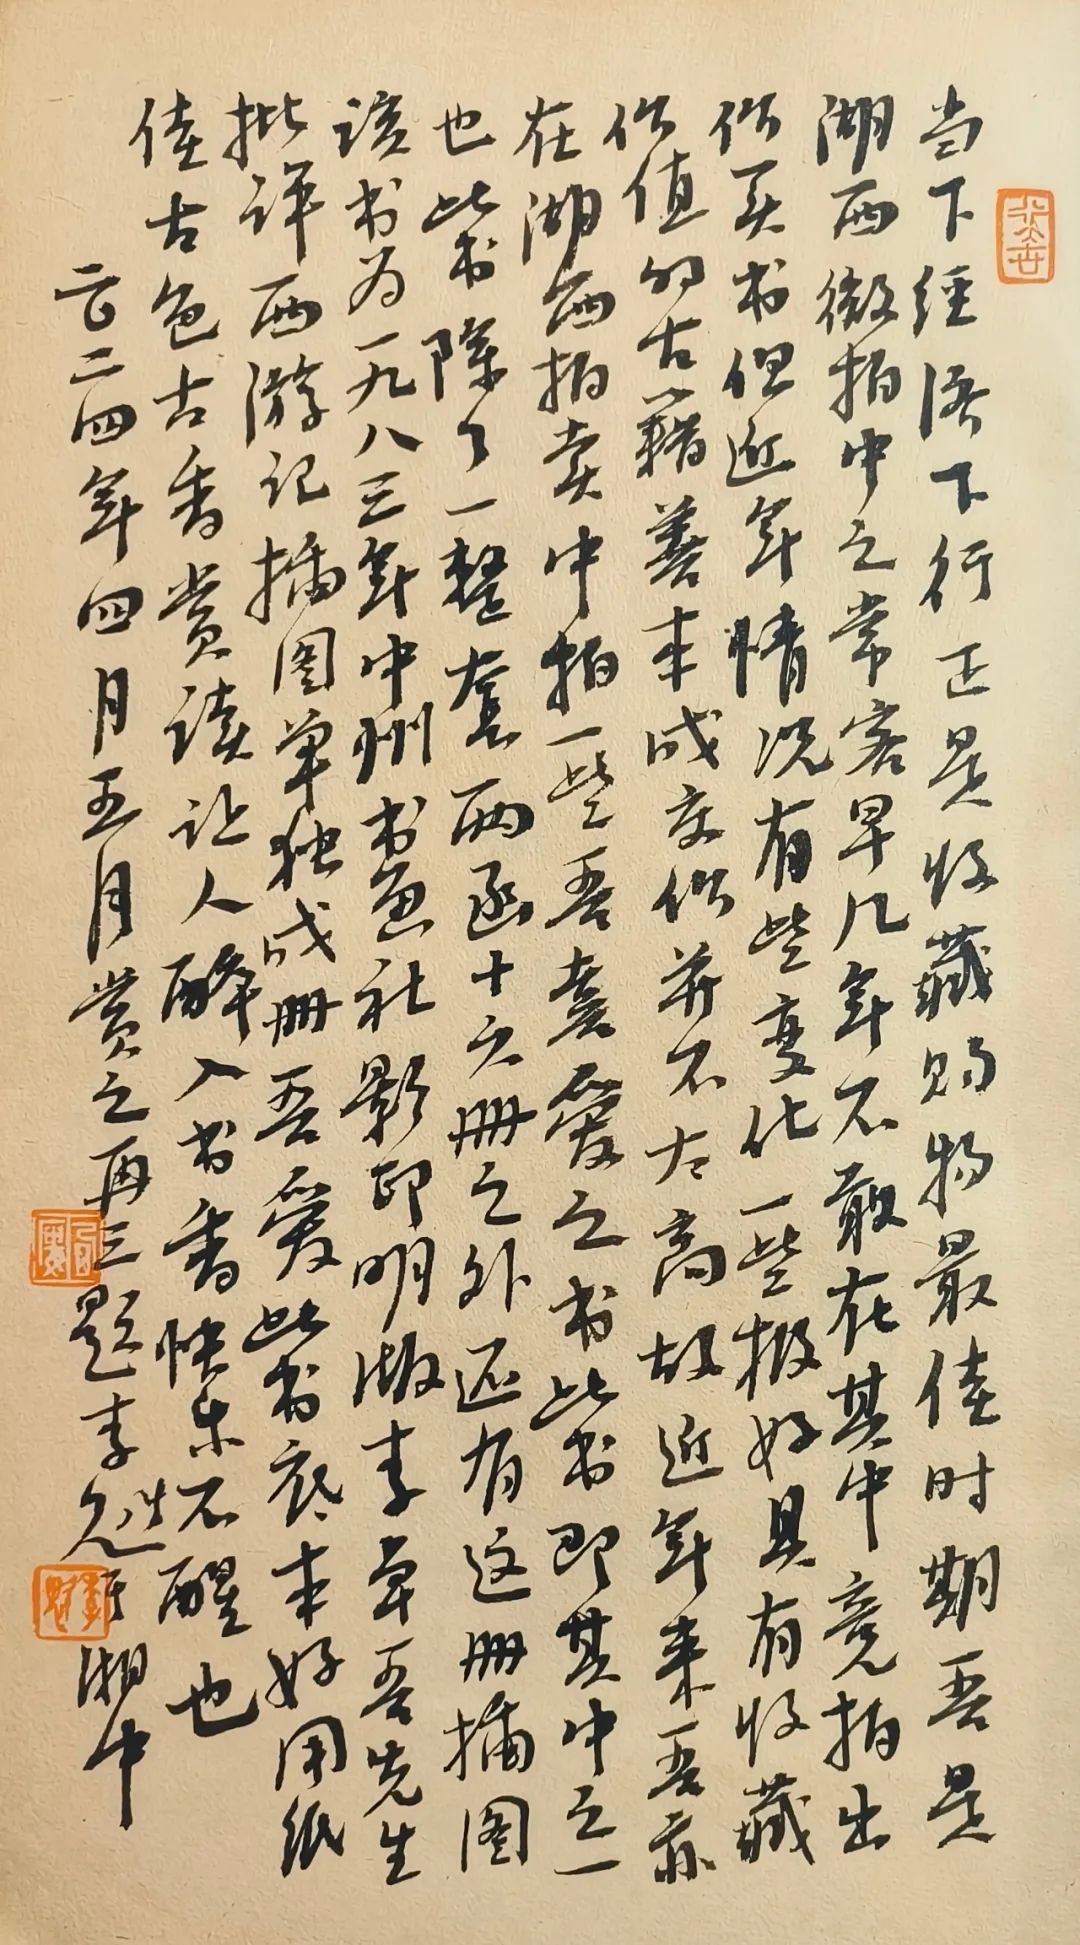 当下经济下行正是收藏购物最佳时期吾是
湖西微拍中之常客早几年不敢在其中竞拍出
价买书但近年情况有些变化一些极好具有收藏
价值的古籍善本成交价并不太高故近年来吾亦
在湖西拍卖中拍一些吾喜爱之书此书即其中之一
也此书除了一整套两函十六册之外还有这册插图
该书为一九八三年中州书画社影印明版李卓吾先生
批评西游记插图单独成册吾爱此书底本好用纸
佳古色古香赏读让人醉入书香快乐不醒也
二〇二四年四月五月赏之再三题李于湘中